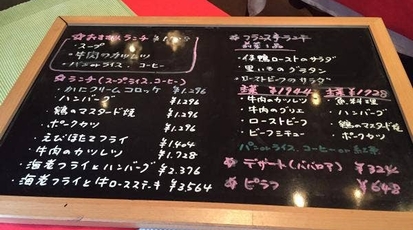 ☆おまかせランチ ¥1,728
・スープ
・牛肉のカツレツ
・パンorライス・コーヒー
☆ランチ(スープ.ライス.コーヒー)
・かにクリームコロッケ ¥1,296
・ハンバーグ ¥1,296
・鶏のマスタード焼 ¥1,296
・ポークカツ ¥1,296
・えびほたてフライ ¥1,404
・牛肉のカツレツ ¥1,728
・海老フライとハンバーグ ¥2,376
・海老フライと牛ロースステーキ ¥3,564
☆フランス
・仔鴨ローストのサラダ
・グラタン
・ローストビーフのサラダ
主菜 ¥1944
・牛肉のカツレツ
・牛肉のグリエ
・ローストビーフ
・ビーフシチュー
主菜 ¥1728
・魚料理
・ハンバーグ
・鶏のマスタード焼
・ポークカツ
パンorライス、コーヒーor紅茶
☆デザート(ババロア) ¥324
☆ピラフ ¥648